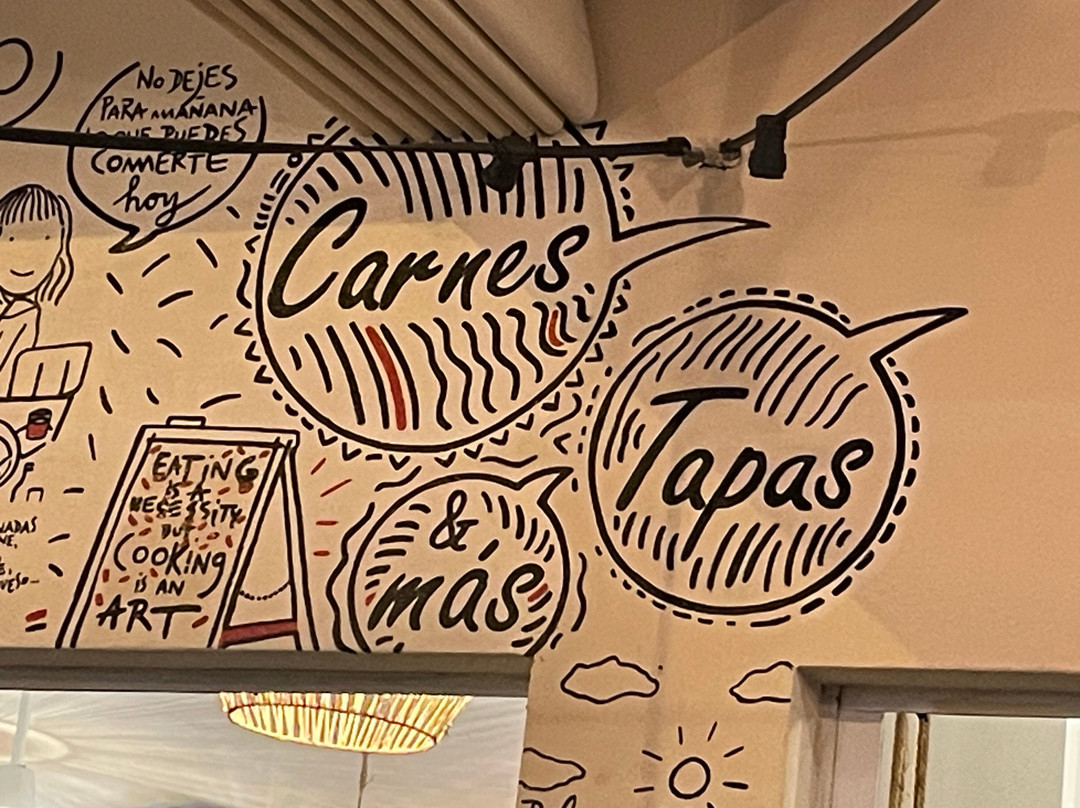 No DEjES
PARA MAÑANA
LO QUE PUEDES
COMERTE
hoy
Carnes
Tapas
& más
EATiNG
iS A
NESESSiTY
BUT
COOKiNG
iS AN
ART